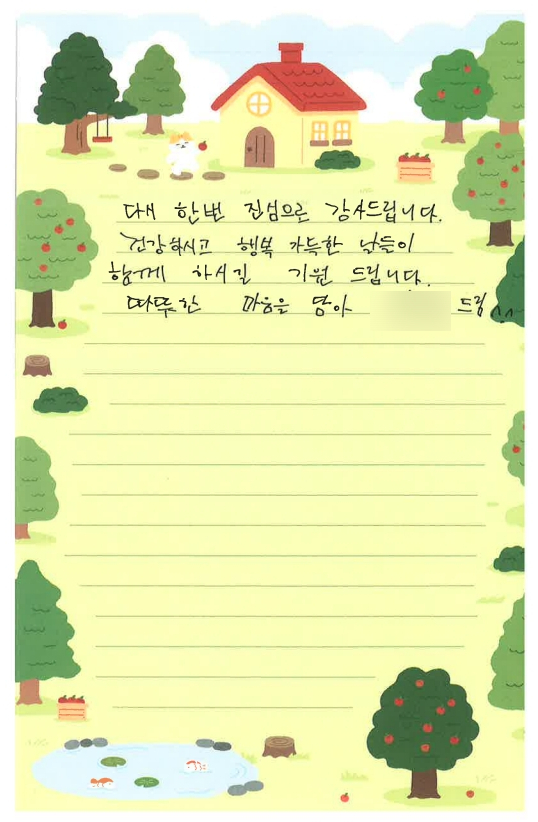 다시 한번 진심으로 감사드립니다.
건강하시고 행복 가득한 날들이
함께 하시길 기원 드립니다.
따뜻한 마음을 담아 드림^^